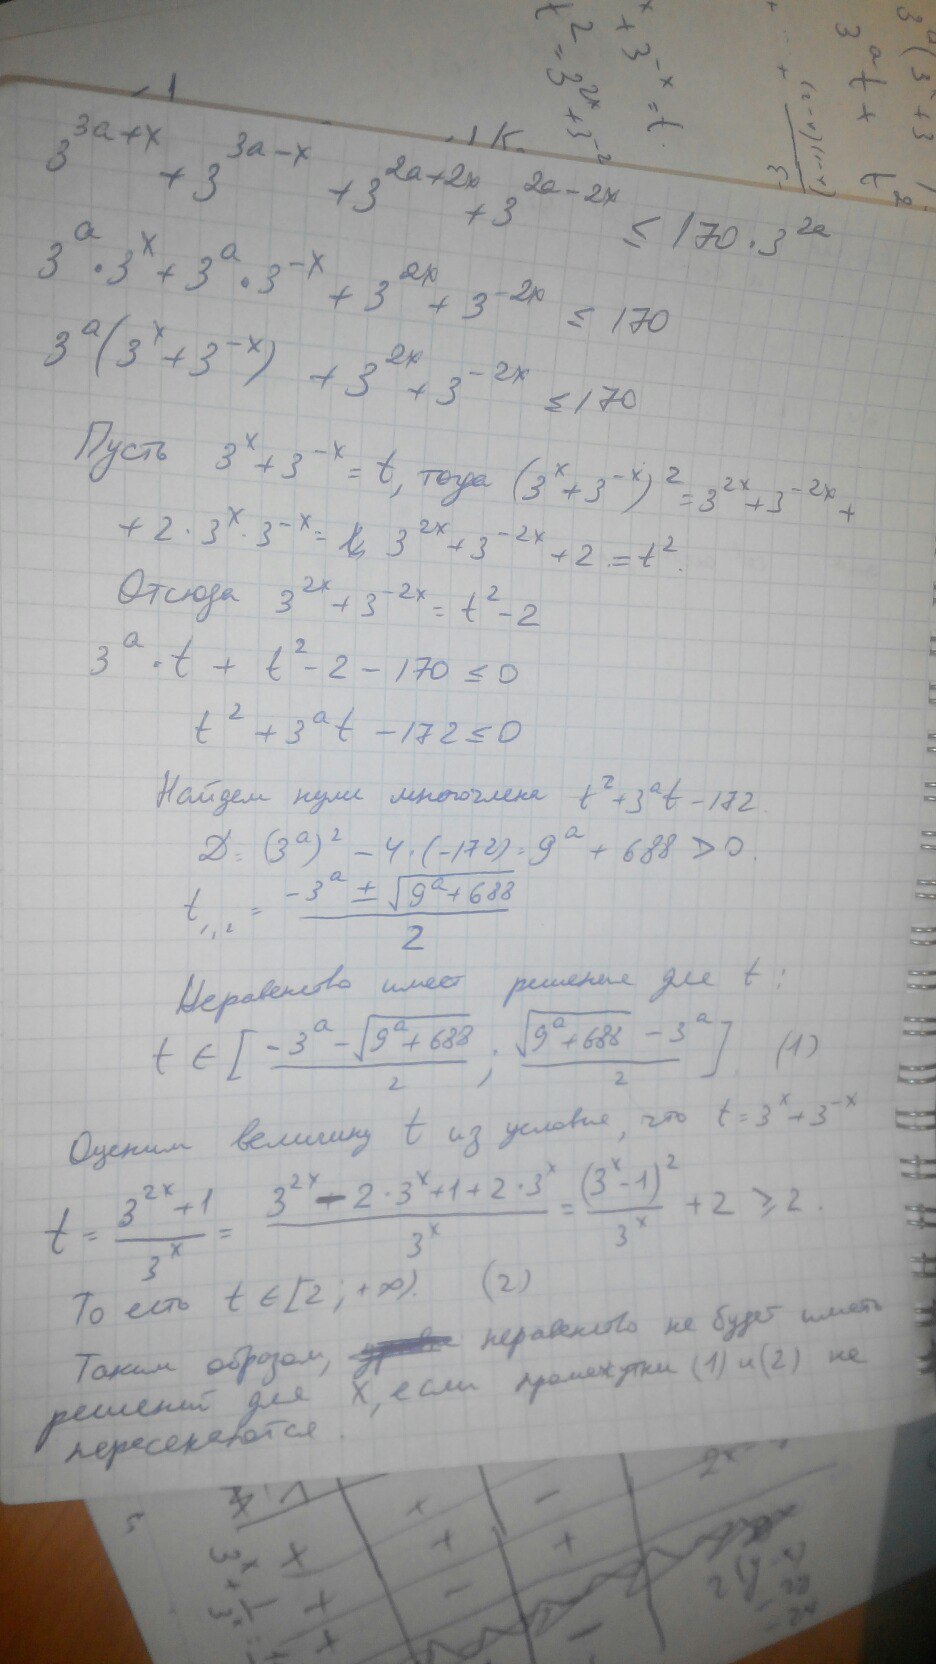 3^{3a+x} + 3^{3a-x} + 3^{2a+2x} + 3^{2a-2x} ≤ 170·3^{2a}
3^a·3^x + 3^a·3^{-x} + 3^{2x} + 3^{-2x} ≤ 170
3^a(3^x + 3^{-x}) + 3^{2x} + 3^{-2x} ≤ 170
Пусть 3^x + 3^{-x} = t, тогда (3^x + 3^{-x})^2 = 3^{2x} + 3^{-2x} +
+ 2·3^x·3^{-x} = t, 3^{2x} + 3^{-2x} + 2 = t^2.
Отсюда 3^{2x} + 3^{-2x} = t^2 - 2
3^a·t + t^2 - 2 - 170 ≤ 0
t^2 + 3^a t - 172 ≤ 0
Найдем нули многочлена t^2 + 3^a t - 172.
D = (3^a)^2 - 4·(-172) = 9^a + 688 > 0.
t_{1,2} = \frac{-3^a ± \sqrt{9^a + 688}}{2}
Неравенство имеет решение для t:
t ∈ [\frac{-3^a - \sqrt{9^a + 688}}{2}; \frac{\sqrt{9^a + 688} - 3^a}{2}] (1)
Оценим величину t из условия, что t = 3^x + 3^{-x}
t = \frac{3^{2x} + 1}{3^x} = \frac{3^{2x} - 2·3^x + 1 + 2·3^x}{3^x} = \frac{(3^x - 1)^2}{3^x} + 2 ≥ 2.
То есть t ∈ [2; +∞). (2)
Таким образом, неравенство не будет иметь
решений для x, если промежутки (1) и (2) не
пересекаются.